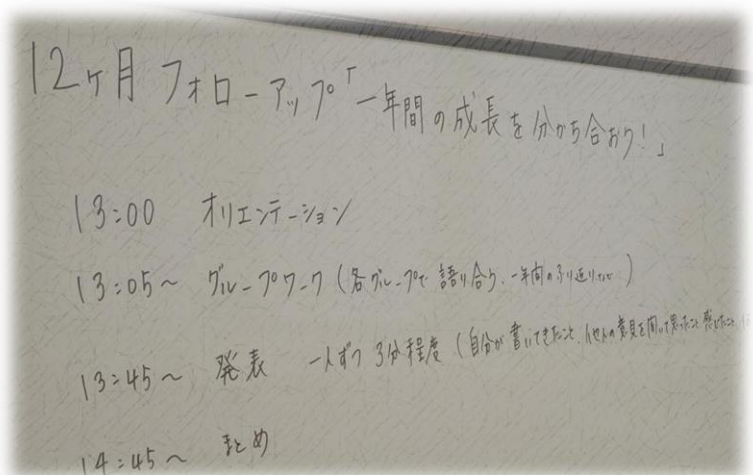 12ヶ月 フォローアップ「一年間の成長を分かち合おう!」
13:00 オリエンテーション
13:05〜 グループワーク(各グループで語り合う、一年間のふり返りなど)
13:45〜 発表 一人ずつ 3分程度(自分が書いてきたこと、他人の意見を聞いて思ったこと 感じたこと
14:45〜 まとめ